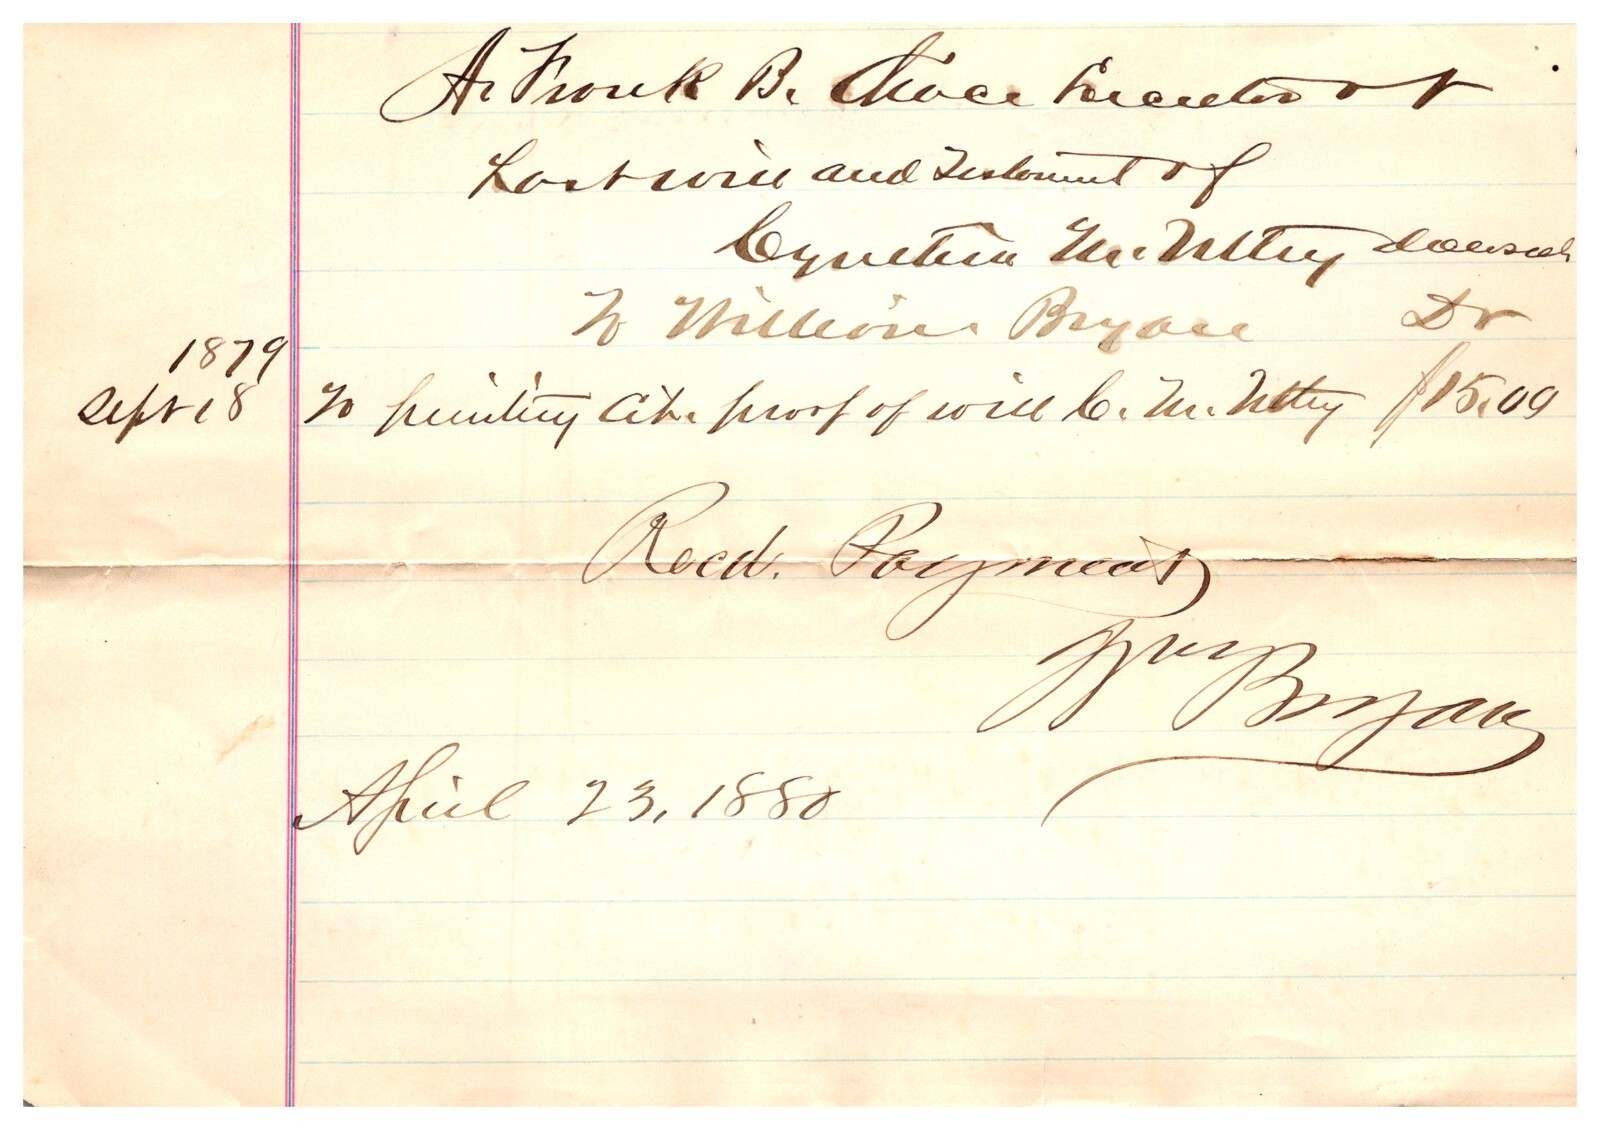 A. Frank B. Chace Executor &
Last will and Testament of
Cynthia M. Uttey deceased
To William Bryan Dr
1879
Sept 18 To printing Cit. proof of will C. M. Uttey $15.09
Recd. Payment
Wm Bryan
April 23, 1880